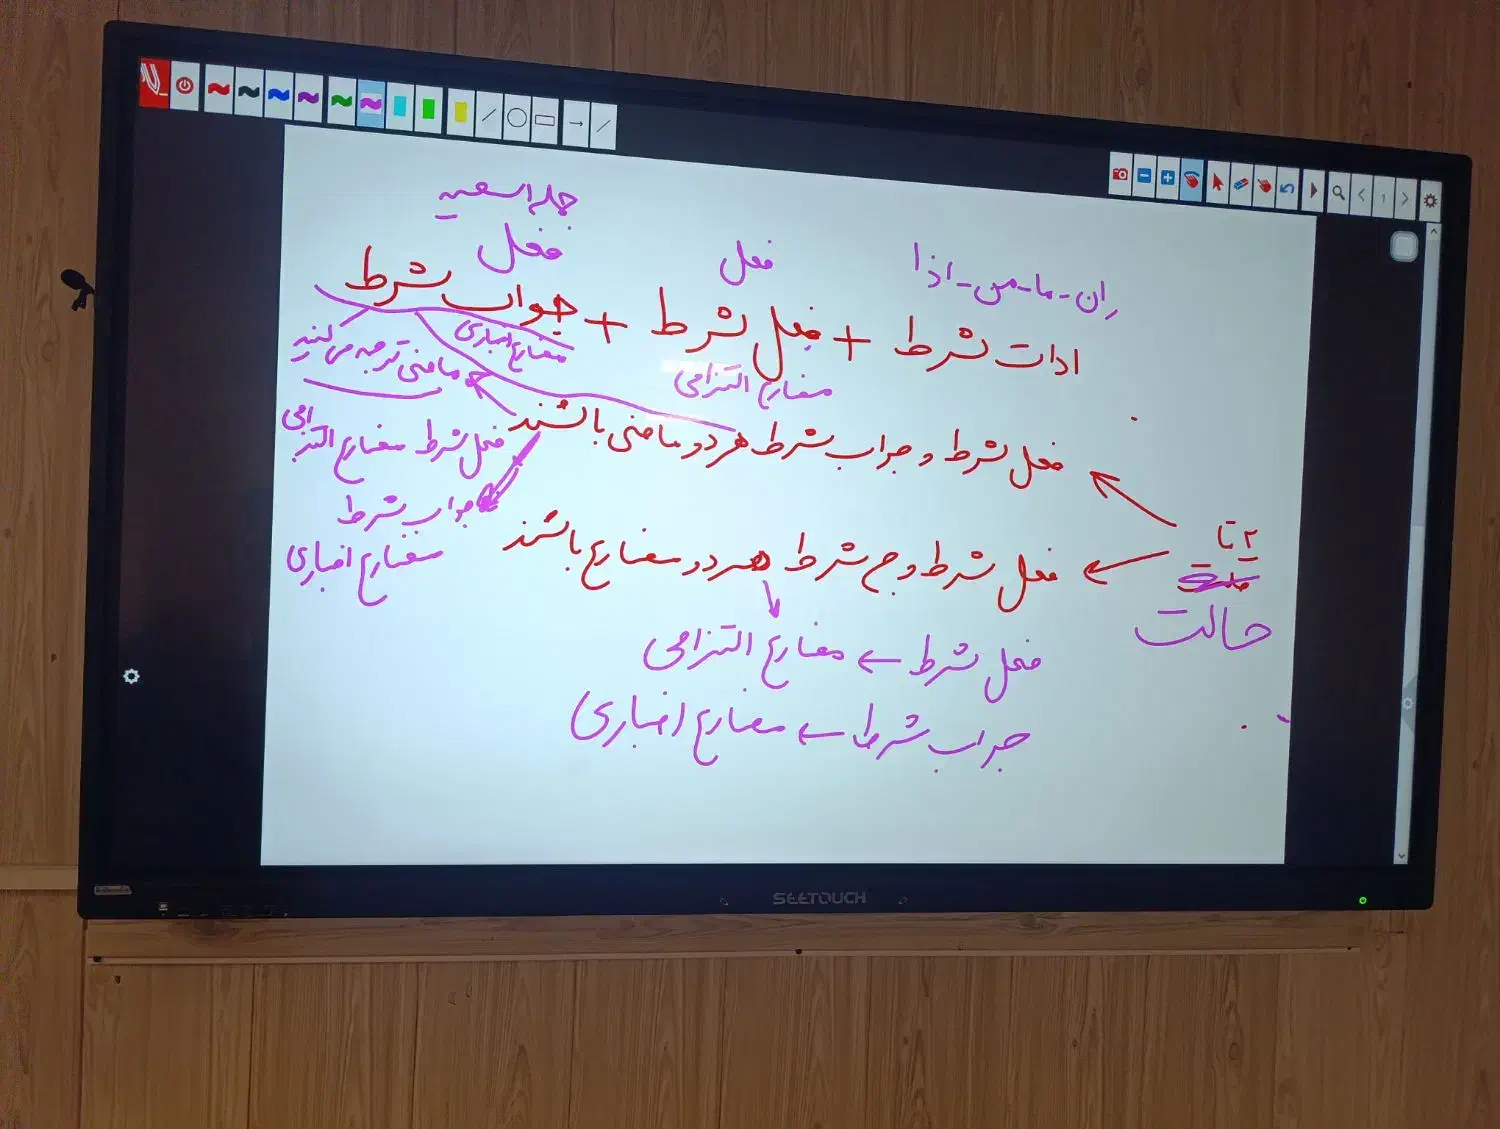 جمله اسمیه
إن - ما - من - اذا
فعل
فعل
ادات شرط + فعل شرط + جواب شرط
مضارع التزامی
مضارع اخباری
ماضی ترجمه می‌کنید
فعل شرط و جواب شرط هر دو ماضی باشند
فعل شرط مضارع التزامی
جواب شرط
مضارع اخباری
۲ تا
حالت
فعل شرط و ج شرط هر دو مضارع باشند
فعل شرط ← مضارع التزامی
جواب شرط ← مضارع اخباری
SEETOUCH